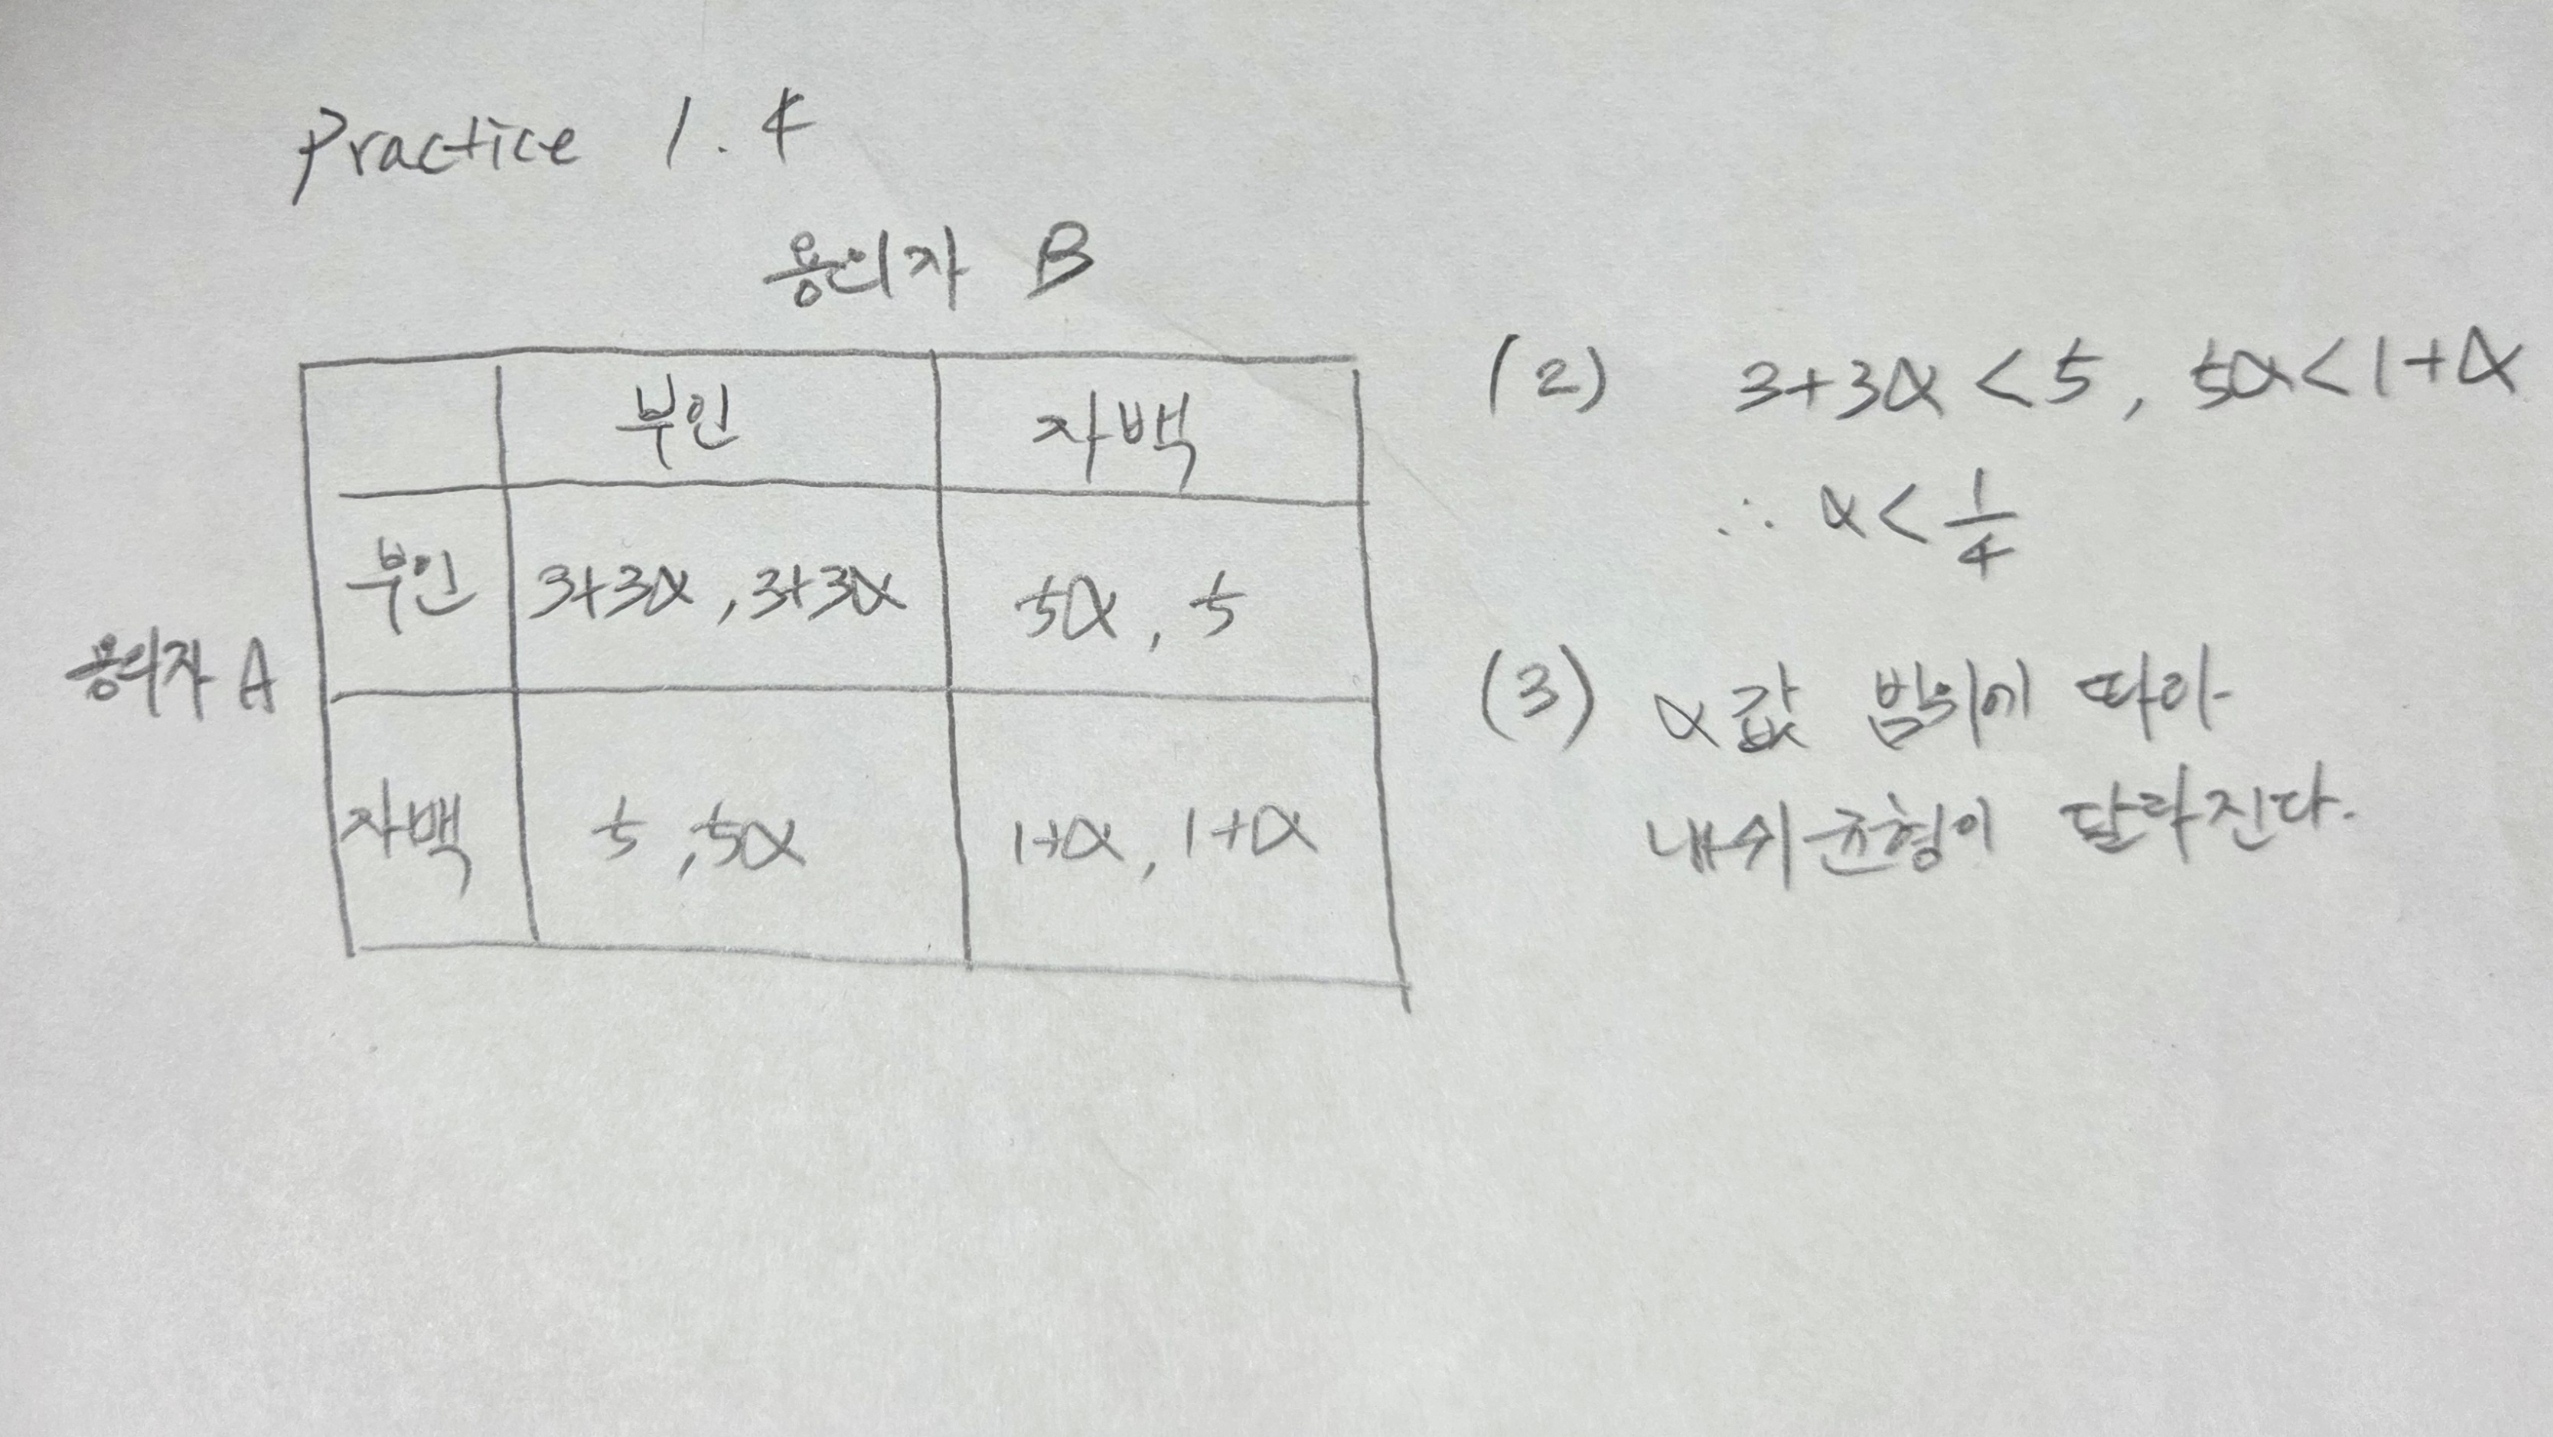 Practice 1.4
용의자 B
부인 자백
부인 3+3α, 3+3α 5α, 5
용의자 A
자백 5, 5α 1+α, 1+α
(2) 3+3α < 5, 5α < 1+α
∴ α < 1/4
(3) α값 범위에 따라
내쉬균형이 달라진다.